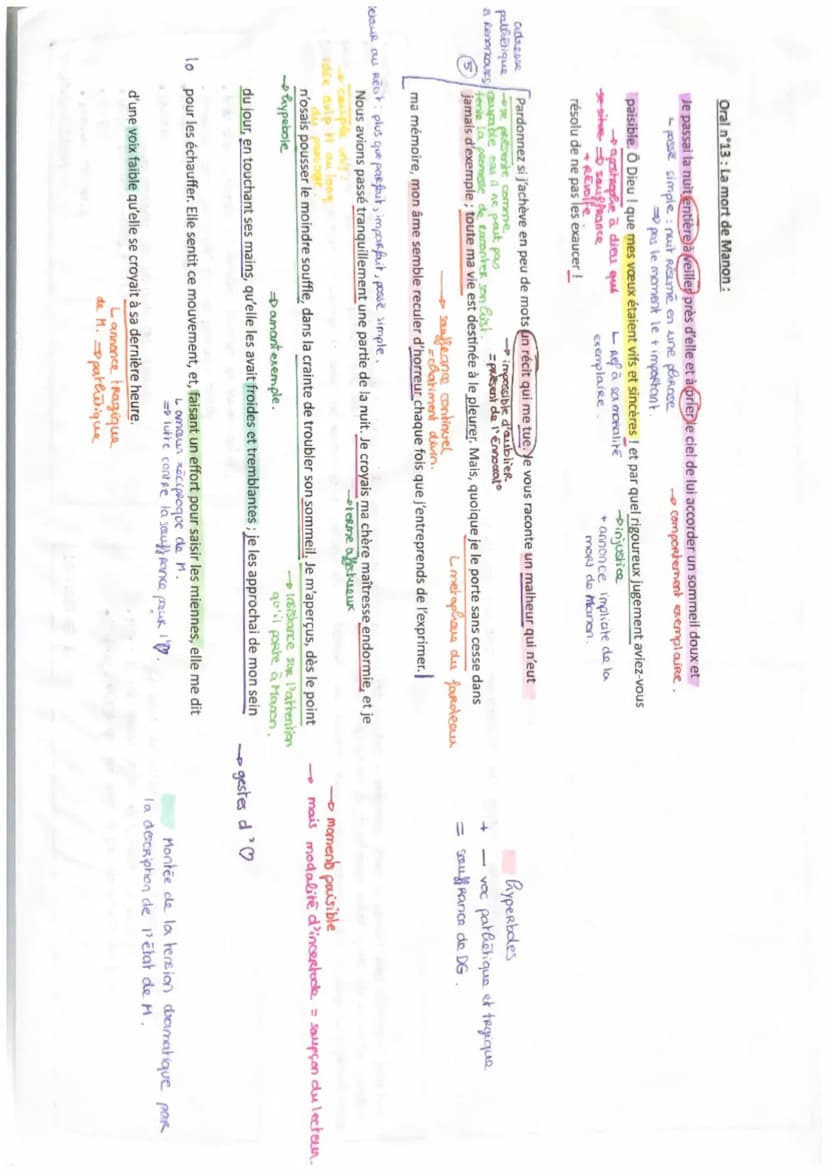 Oral n°13 : La mort de Manon :
Je passai la nuit entière à veiller près d'elle et à prier le ciel de lui accorder un sommeil doux et
↳ passé simple : nuit résumé en une phrase
⇒ pas le moment le + important.
→ comportement exemplaire.
paisible. Ô Dieu ! que mes vœux étaient vifs et sincères ! et par quel rigoureux jugement aviez-vous
→ apostrophe à dieu qui
⇒ souffrance
+ révolte.
↳ ref à sa moralité
exemplaire.
→ injustice
+ annonce implicite de la
mort de Manon.
résolu de ne pas les exaucer !
adresse
pathétique
à Renoncour
Pardonnez si j'achève en peu de mots un récit qui me tue. Je vous raconte un malheur qui n'eut
→ se présente comme
coupable car il ne peut pas
tenir la promesse de raconter son hist.
→ impossible d'oublier
= présent de l'énonciat°
5
jamais d'exemple ; toute ma vie est destinée à le pleurer. Mais, quoique je le porte sans cesse dans
→ souffrance continuel
= châtiment divin.
↳ métaphore du fardeau
ma mémoire, mon âme semble reculer d'horreur chaque fois que j'entreprends de l'exprimer.
hyperboles
+ — voc pathétique et tragique
= souffrance de DG.
retour au récit : plus que parfait, imparfait, passé simple.
Nous avions passé tranquillement une partie de la nuit. Je croyais ma chère maîtresse endormie, et je
→ terme affectueux
→ moment paisible
→ mais modalité d'incertitude = soupçon du lecteur.
n'osais pousser le moindre souffle, dans la crainte de troubler son sommeil. Je m'aperçus, dès le point
→ hyperbole
⇒ amant exemple.
→ insistance sur l'attention
qu'il porte à Manon.
du jour, en touchant ses mains, qu'elle les avait froides et tremblantes ; je les approchai de mon sein
→ gestes d'♡
10
pour les échauffer. Elle sentit ce mouvement, et, faisant un effort pour saisir les miennes, elle me dit
↳ amour réciproque de M.
⇒ lutte contre la souffrance pour l'♡.
Montée de la tension dramatique par
la description de l'état de M.
d'une voix faible qu'elle se croyait à sa dernière heure.
↳ annonce tragique
de M. ⇒ pathétique